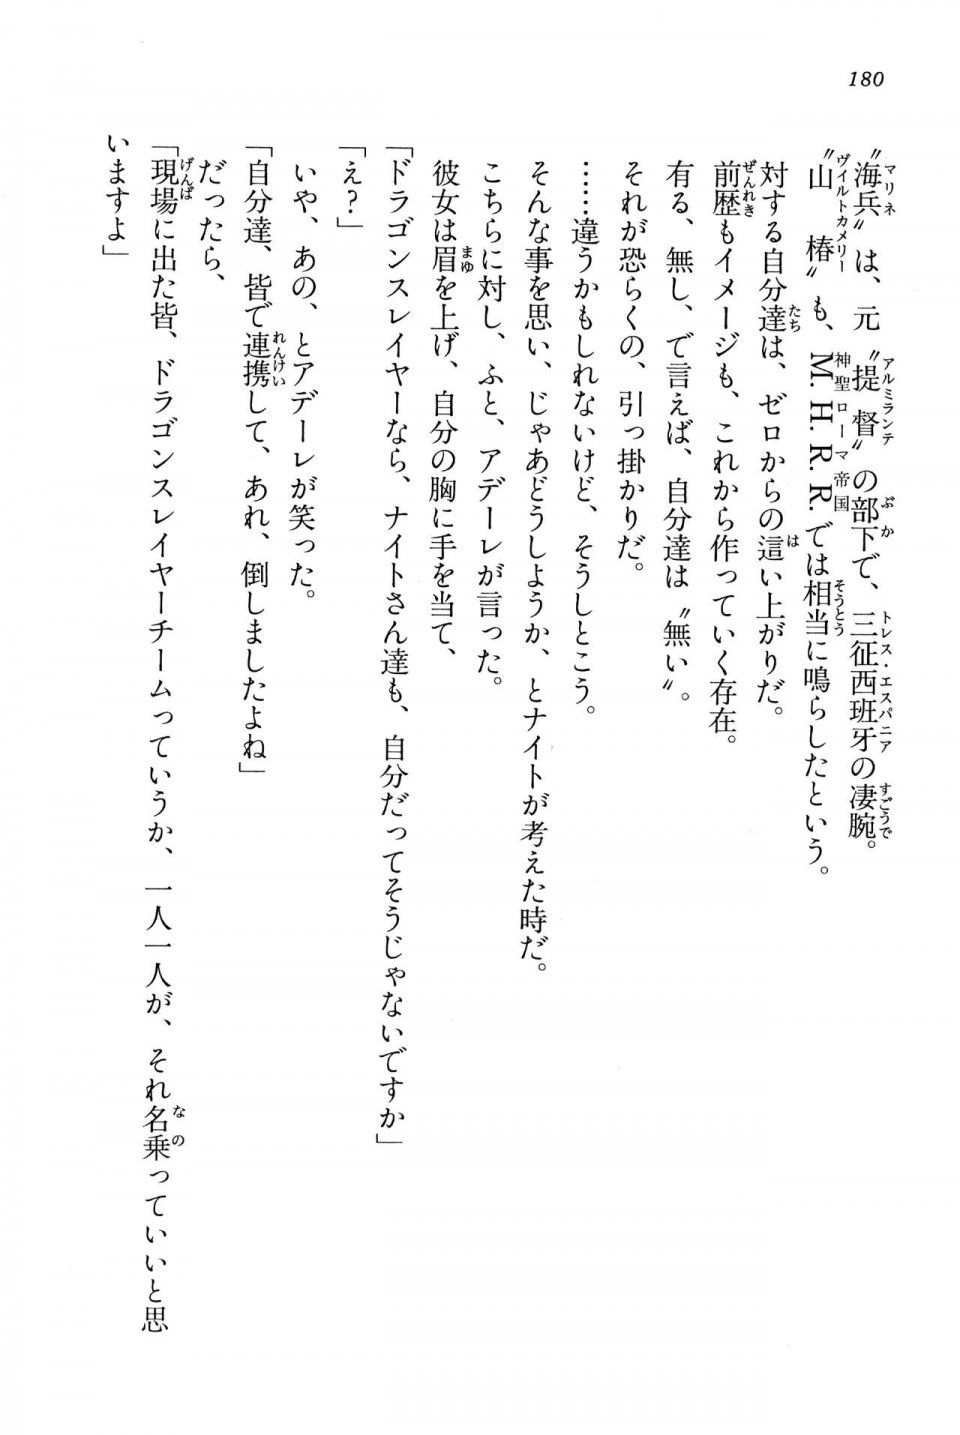 180
〝海兵〟は、元〝提督〟の部下で、三征西班牙の凄腕。
〝山椿〟も、M.H.R.R.では相当に鳴らしたという。
対する自分達は、ゼロからの這い上がりだ。
前歴もイメージも、これから作っていく存在。
有る、無し、で言えば、自分達は〝無い〟。
それが恐らくの、引っ掛かりだ。
……違うかもしれないけど、そうしとこう。
そんな事を思い、じゃあどうしようか、とナイトが考えた時だ。
こちらに対し、ふと、アデーレが言った。
彼女は眉を上げ、自分の胸に手を当て、
「ドラゴンスレイヤーなら、ナイトさん達も、自分だってそうじゃないですか」
「え?」
いや、あの、とアデーレが笑った。
「自分達、皆で連携して、あれ、倒しましたよね」
だったら、
「現場に出た皆、ドラゴンスレイヤーチームっていうか、一人一人が、それ名乗っていいと思
いますよ」